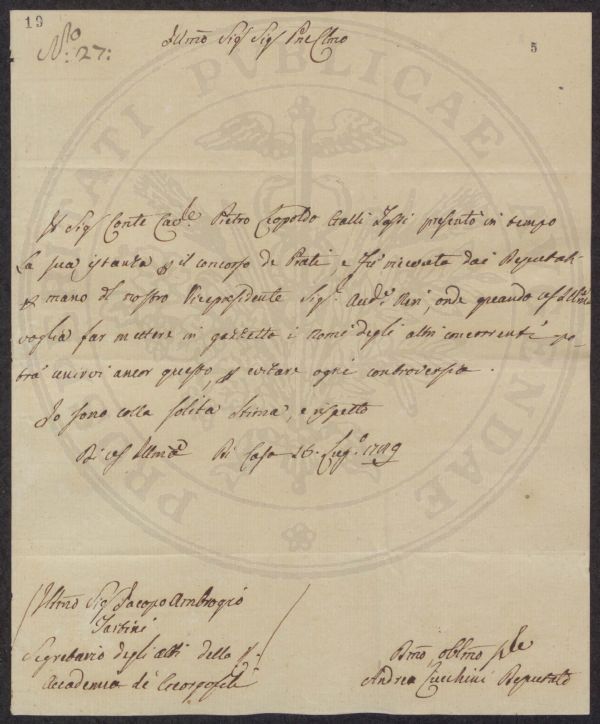 19
N.ro 27:
5
Illmo Sig.r Sig.r Pne Clmo
Il Sig.r Conte Cav.le Pietro Leopoldo Galli Tassi presentò in tempo
la sua istanza p il concorso de Prati, e fu ricevuta dai Deputati
p mano del nostro Vicepresidente Sig.r Aud.r, onde quando
voglia far mettere in gazzetta i nomi degli altri concorrenti po-
trà unirvi ancor questo, p evitare ogni controversia.
Io sono colla solita stima, e rispetto
Di Illma Di Casa 26. Lug.o 1789
Illmo Sig.r Jacopo Ambrogio
Tartini
Segretario degli atti della R.
Accademia de Georgofili
Dmo, obblmo
Andrea Zucchini Deputato
PROSPERITATI PUBLICAE AUGENDAE